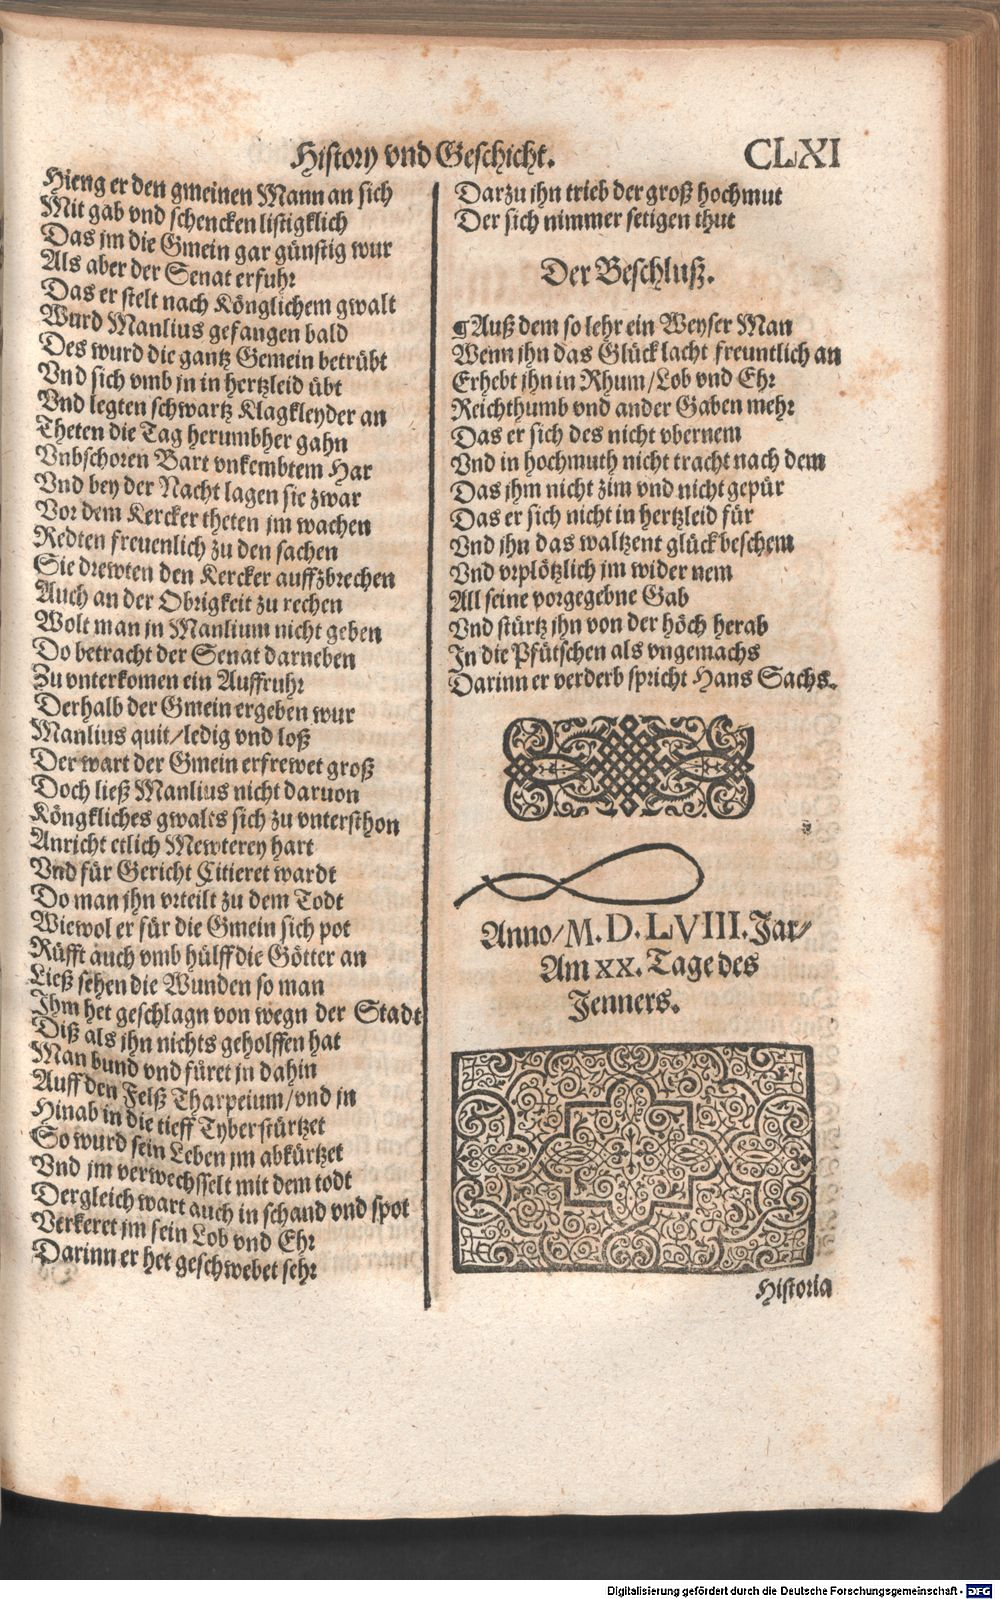 History vnd Geschicht.
CLXI
Hieng er den gmeinen Mann an sich
Mit gab vnd schencken listigklich
Das jm die Gmein gar günstig wur
Als aber der Senat erfuhr
Das er stelt nach Könglichem gwalt
Wurd Manlius gefangen bald
Des wurd die gantz Gemein betrübt
Vnd sich vmb jn in hertzleid übt
Vnd legten schwartz Klagkleyder an
Theten die Tag herumbher gahn
Vnbschoren Bart vnkembtem Har
Vnd bey der Nacht lagen sie zwar
Vor dem Kercker theten jm wachen
Redten freuenlich zu den sachen
Sie drewten den Kercker auffzbrechen
Auch an der Obrigkeit zu rechen
Wolt man jn Manlium nicht geben
Do betracht der Senat darneben
Zu vnterkomen ein Auffruhr
Derhalb der Gmein ergeben wur
Manlius quit/ledig vnd loß
Der wart der Gmein erfrewet groß
Doch ließ Manlius nicht daruon
Köngkliches gwalts sich zu vntersthon
Anricht etlich Mewterey hart
Vnd für Gericht Citieret wardt
Do man jhn vrteilt zu dem Todt
Wiewol er für die Gmein sich pot
Rüfft auch vmb hülff die Götter an
Ließ sehen die Wunden so man
Jhm het geschlagn von wegn der Stadt
Diß als jhn nichts geholffen hat
Man bund vnd füret jn dahin
Auff den Felß Tharpeium/vnd jn
Hinab in die tieff Tyber stürtzet
So wurd sein Leben jm abkürtzet
Vnd jm verwechsselt mit dem todt
Dergleich wart auch in schand vnd spot
Verkeret jm sein Lob vnd Ehr
Darinn er het geschwebet sehr
Darzu jhn trieb der groß hochmut
Der sich nimmer setigen thut
Der Beschluß.
¶Auß dem so lehr ein Weyser Man
Wenn jhn das Glück lacht freuntlich an
Erhebt jhn in Rhum/Lob vnd Ehr
Reichthumb vnd ander Gaben mehr
Das er sich des nicht vbernem
Vnd in hochmuth nicht tracht nach dem
Das jhm nicht zim vnd nicht gepür
Das er sich nicht in hertzleid für
Vnd jhn das waltzent glück beschem
Vnd vrplötzlich jm wider nem
All seine vorgegebne Gab
Vnd stürtz jhn von der höch herab
In die Pfütschen als vngemachs
Darinn er verderb spricht Hans Sachs.
Anno/M.D.LVIII.Jar/
Am XX. Tage des
Jenners.
Historia
Digitalisierung gefördert durch die Deutsche Forschungsgemeinschaft - DFG